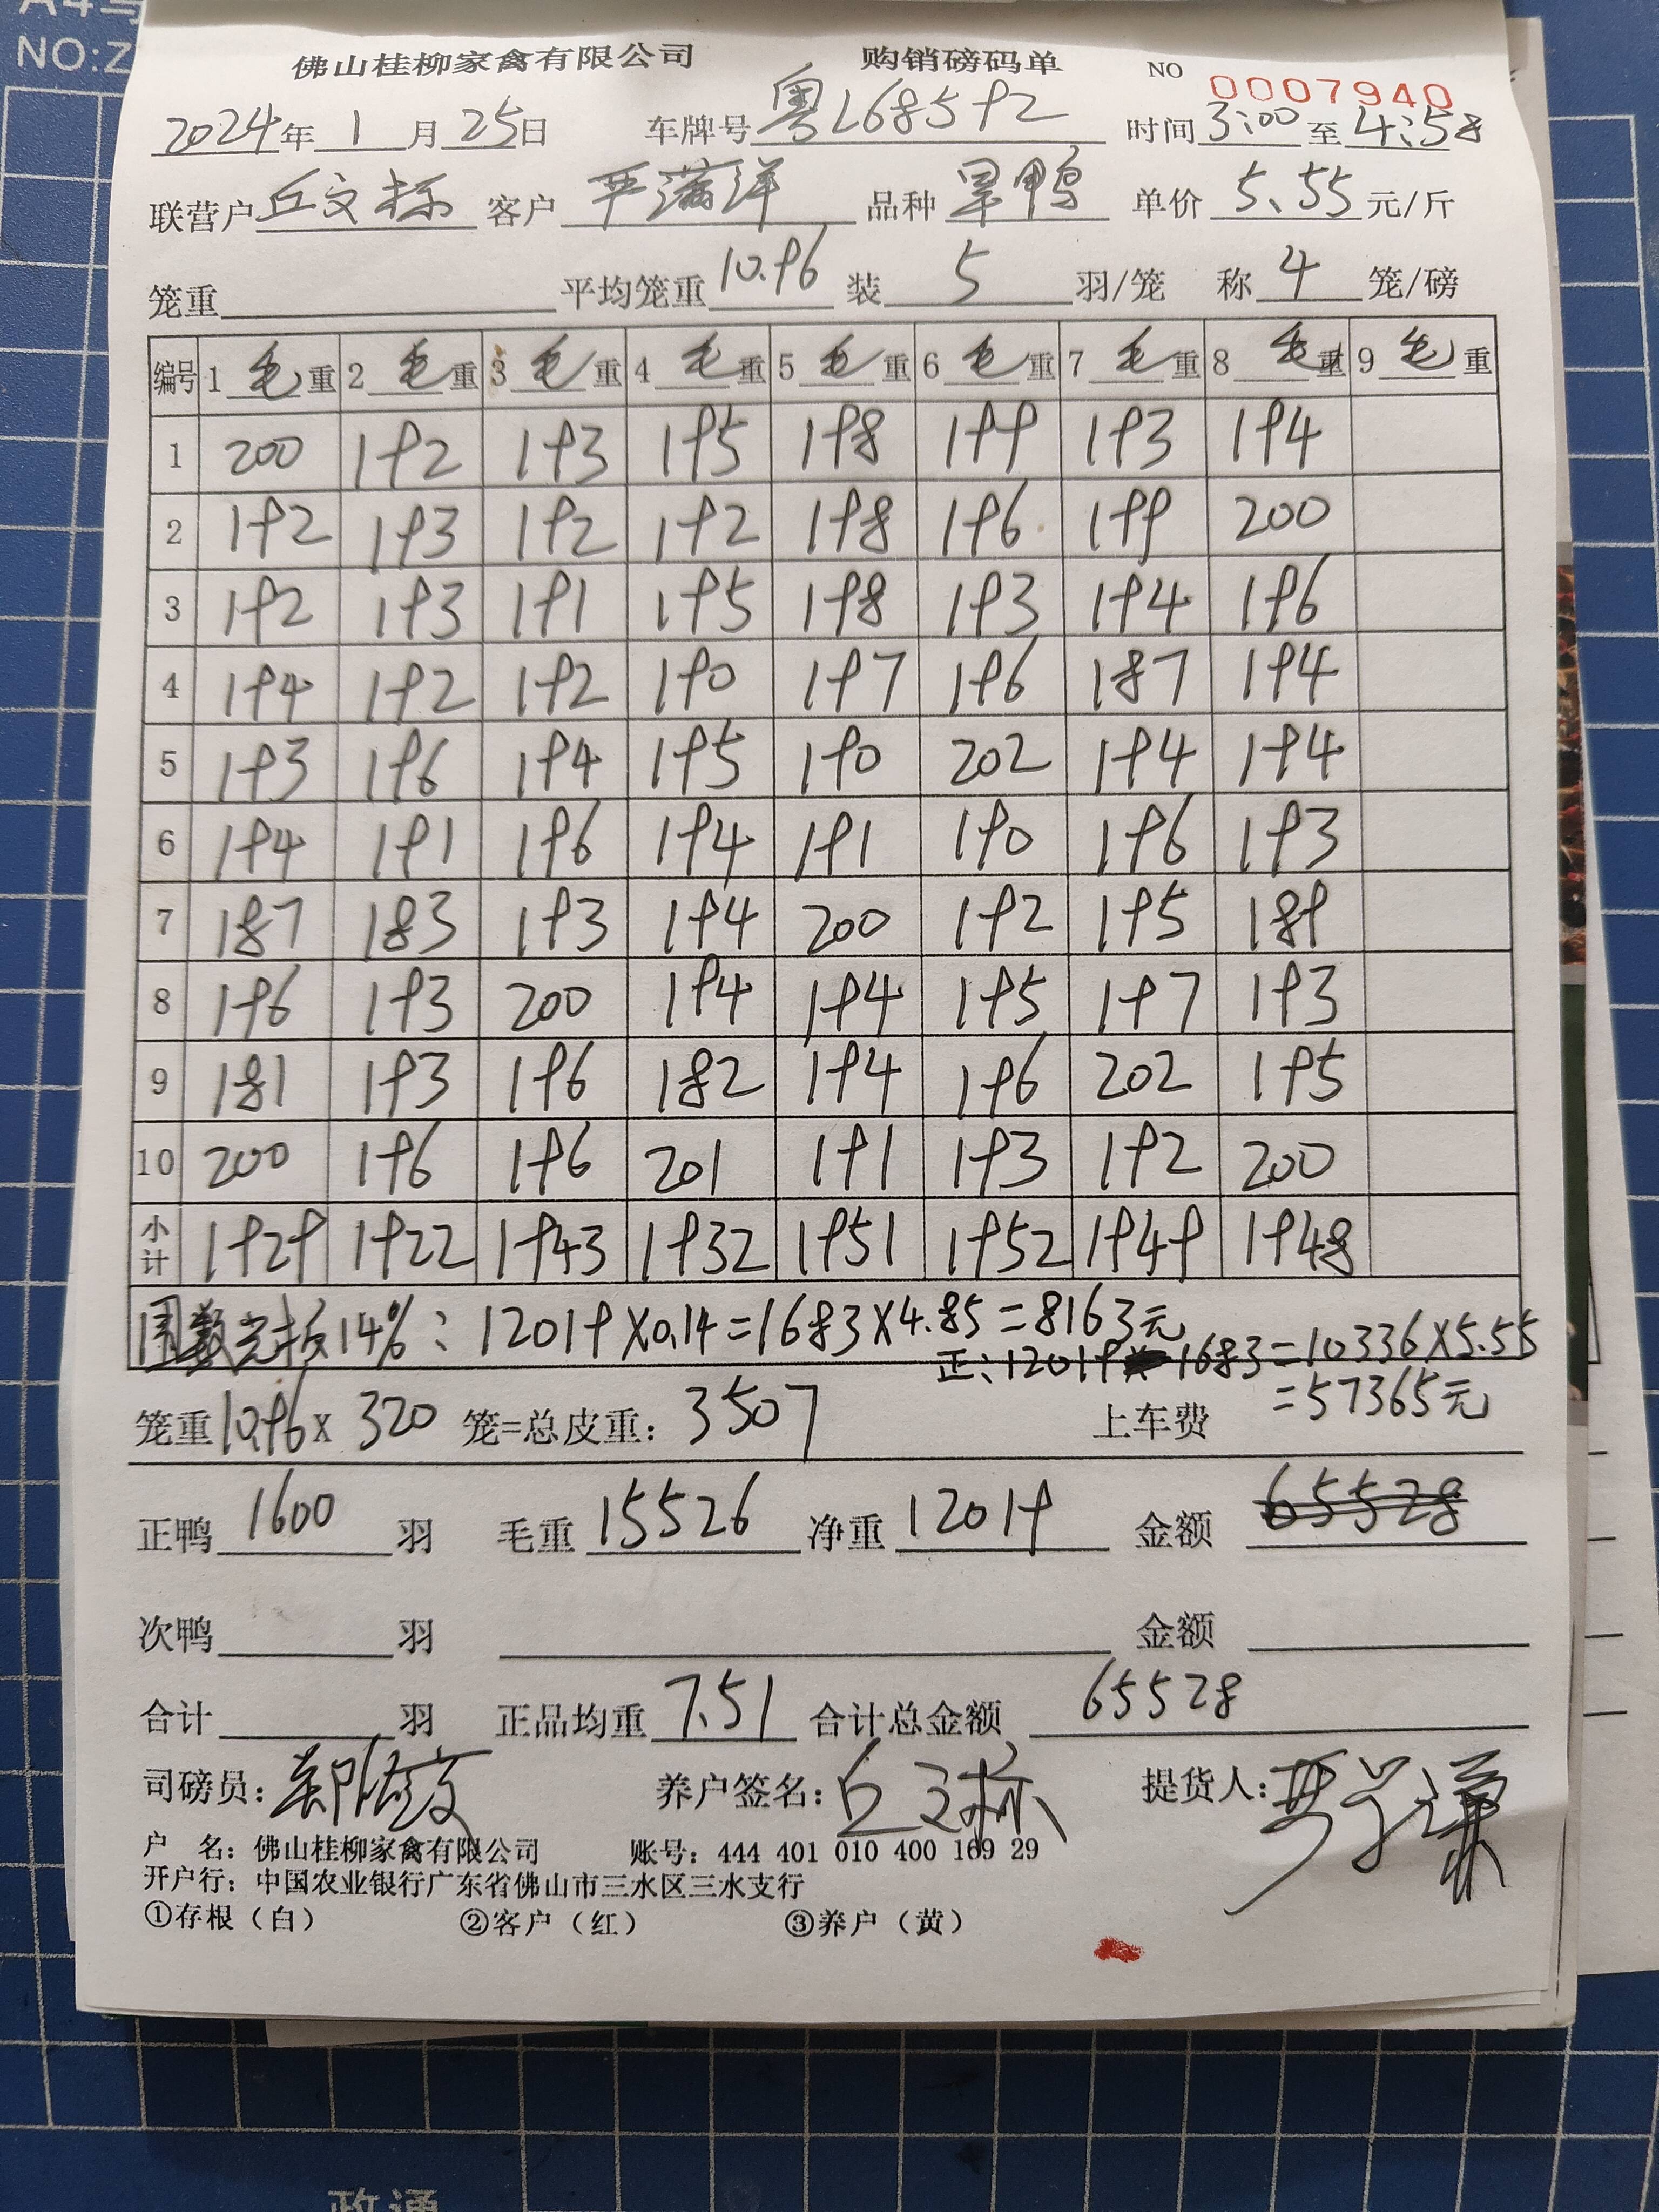 NO:Z
佛山桂柳家禽有限公司 购销磅码单 NO 0007940
2024年 1 月 25日 车牌号 粤L68592 时间 3:00 至 4:58
联营户 丘文标 客户 严满洋 品种 旱鸭 单价 5.55 元/斤
笼重 平均笼重 10.96 装 5 羽/笼 称 4 笼/磅
编号 1 毛 重 2 毛 重 3 毛 重 4 毛 重 5 毛 重 6 毛 重 7 毛 重 8 毛 重 9 毛 重
1 200 192 193 195 198 199 193 194
2 192 193 192 192 198 196 199 200
3 192 193 191 195 198 193 194 196
4 194 192 192 190 197 196 187 194
5 193 196 194 195 190 202 194 194
6 194 191 196 194 191 190 196 193
7 187 183 193 194 200 192 195 189
8 196 193 200 194 194 195 197 193
9 181 193 196 182 194 196 202 195
10 200 196 196 201 191 193 192 200
小计 1929 1922 1943 1932 1951 1952 1949 1948
14%: 12019×0.14=1683×4.85=8163元
正: 12019 1683=10336×5.55
=57365元
笼重10.96× 320 笼=总皮重: 3507 上车费
正鸭 1600 羽 毛重 15526 净重 12019 金额 65528
次鸭 羽 金额
合计 羽 正品均重 7.51 合计总金额 65528
司磅员: 养户签名: 丘文标 提货人:
户 名: 佛山桂柳家禽有限公司 账号: 444 401 010 400 169 29
开户行: 中国农业银行广东省佛山市三水区三水支行
①存根（白） ②客户（红） ③养户（黄）
政通